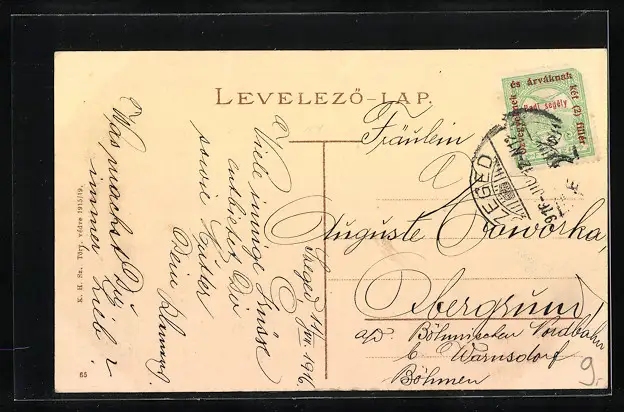 LEVELEZŐ-LAP.
Fräulein
Auguste Jaworka,
Obergrund
a/d Böhmischen Nordbahn
b Warnsdorf
Böhmen
Szeged 14/VIII 1916
Viele innige Grüsse
entbietet Dir
sowie Mutter
Dein
Was machst Du
immer Lieb?
K. H. Sz. Törv. védve 1915/19.
65
özvegyeknek és árváknak két (2) fillér
Hadi segély
SZEGED
9.